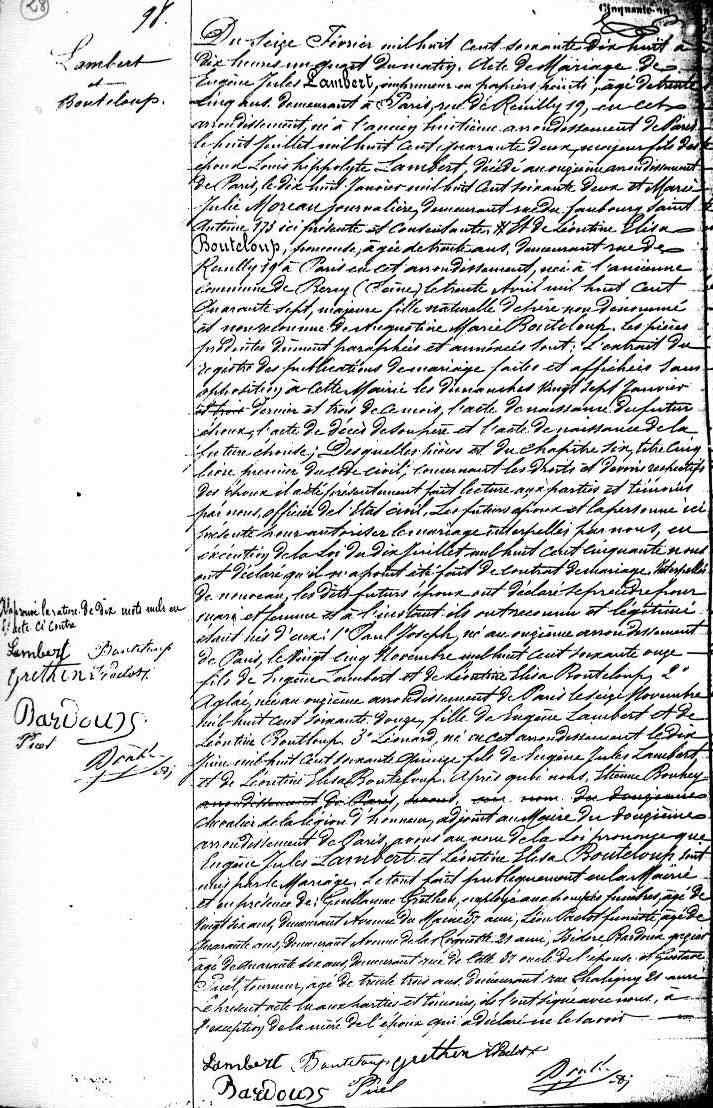 28
98.
Cinquante
Lambert
et
Bouteloup.
Du Seize Février mil huit Cent soixante dix huit à
dix heures un quart du matin. Acte de Mariage de
Eugène Jules Lambert, imprimeur en papiers peints, âgé de trente
cinq ans, demeurant à Paris, rue de Reuilly 19, en cet
arrondissement, né à l'ancien huitième arrondissement de Paris
le huit Juillet mil huit Cent quarante deux, majeur, fils des
époux Louis hippolyte Lambert, décédé au onzième arrondissement
de Paris, le dix huit Janvier mil huit Cent soixante deux et Marie
Julie Moreau journalière, demeurant rue du faubourg Saint
Antoine 173 ici présente et Consentante. Et de Léontine Elisa
Bouteloup, ponceuse, âgée de trente ans, demeurant rue de
Reuilly 19 à Paris en cet arrondissement, née à l'ancienne
commune de Bercy (Seine) le trente Avril mil huit Cent
Quarante sept, majeure fille naturelle de père non dénommé
et non reconnue de Augustine Marie Bouteloup. Les pièces
produites dûment paraphées et annexées sont: L'extrait du
registre des publications de mariage faites et affichées sans
opposition à cette Mairie les dimanches vingt sept Janvier
et trois dernier et trois de ce mois, l'acte de naissance du futur
époux, l'acte de décès de son père et l'acte de naissance de la
future épouse; Desquelles pièces et du chapitre six, titre cinq
livre premier du Code civil, concernant les droits et devoirs respectifs
des époux il a été présentement fait lecture aux parties et témoins
par nous, officier de l'état civil. Les futurs époux et la personne ici
présente pour autoriser le mariage interpellés par nous, en
exécution de la Loi du dix Juillet mil huit Cent cinquante nous
ont déclaré qu'il n'a point été fait de contrat de mariage. Interpellés
de nouveau, les dits futurs époux ont déclaré se prendre pour
mari et femme et à l'instant ils ont reconnu et légitimé
enfants nés d'eux: 1° Paul Joseph, né au onzième arrondissement
de Paris, le vingt cinq Novembre mil huit Cent soixante onze
fils de Eugène Lambert et de Léontine Elisa Bouteloup, 2°
Aglaé, née au onzième arrondissement de Paris le seize Novembre
mil huit Cent soixante douze, fille de Eugène Lambert et de
Léontine Bouteloup. 3° Léonard, né en cet arrondissement le dix
Juin mil huit Cent soixante quinze fils de Eugène Jules Lambert,
et de Léontine Elisa Bouteloup. Après quoi nous,
arrondissement de Paris, avons, au nom du douzième
chevalier de la légion d'honneur, adjoint au Maire du douzième
arrondissement de Paris, avons au nom de la Loi prononcé que
Eugène Jules Lambert et Léontine Elisa Bouteloup sont
unis par le Mariage. Le tout fait publiquement en la Mairie
et en présence de: Guillaume Grethen, employé aux pompes funèbres, âgé de
vingt six ans, demeurant Avenue du Maine 57 ami; Léon
Quarante ans, demeurant Avenue de la Roquette 21 ami; Isidore Bardoux
âgé de quarante six ans, demeurant rue de 37 oncle de l'épouse et Gustave
Piel, tourneur, âgé de trente trois ans, demeurant rue Chaligny 21 ami
Le présent acte lu aux parties et témoins, ils l'ont signé avec nous, à
l'exception de la mère de l'époux qui a déclaré ne le savoir
Approuvé la rature de dix mots nuls en
l'acte ci contre
Lambert Bouteloup
Grethen
Bardoux
Piel
Lambert Bouteloup Grethen
Bardoux Piel